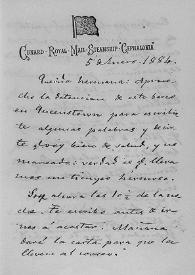 CUNARD ROYAL MAIL STEAMSHIP CEPHALONIA
5 de Enero. 1884.
Querida hermana: Aprove
cho la detencion de este barco
en Queenstown para escribir
te algunas palabras y decir
te estoy bien de salud, y no
mareado: verdad es q. lleva
mos un tiempo hermoso.
Son ahora las 10½ de la no
che. te escribo antes de ir
nos á acostar. Mañana
daré la carta para que la
lleven al correo.